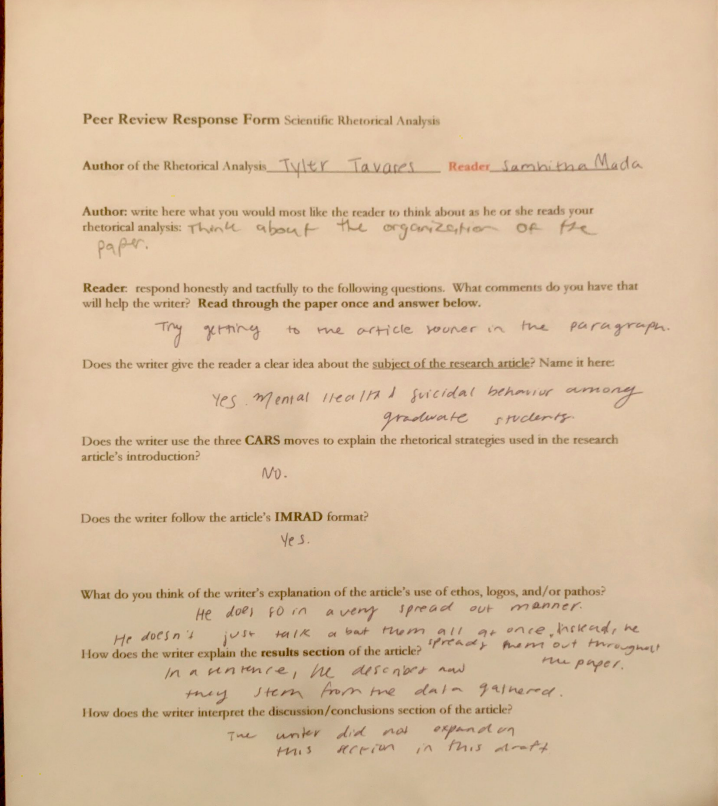 Peer Review Response Form Scientific Rhetorical Analysis
Author of the Rhetorical Analysis Tyler Tavares Reader Samhitha Mada
Author: write here what you would most like the reader to think about as he or she reads your
rhetorical analysis: Think about the organization of the
paper.
Reader: respond honestly and tactfully to the following questions. What comments do you have that
will help the writer? Read through the paper once and answer below.
Try getting to the article sooner in the paragraph.
Does the writer give the reader a clear idea about the subject of the research article? Name it here:
Yes. Mental Health & suicidal behavior among
graduate students
Does the writer use the three CARS moves to explain the rhetorical strategies used in the research
article's introduction?
No.
Does the writer follow the article's IMRAD format?
Yes.
What do you think of the writer's explanation of the article's use of ethos, logos, and/or pathos?
He does so in a very spread out manner.
He doesn't just talk about them all at once, instead, he
spreads them out throughout
the paper.
How does the writer explain the results section of the article?
In a sentence, he describes how
they stem from the data gathered.
How does the writer interpret the discussion/conclusions section of the article?
The writer did not expand on
this section in this draft